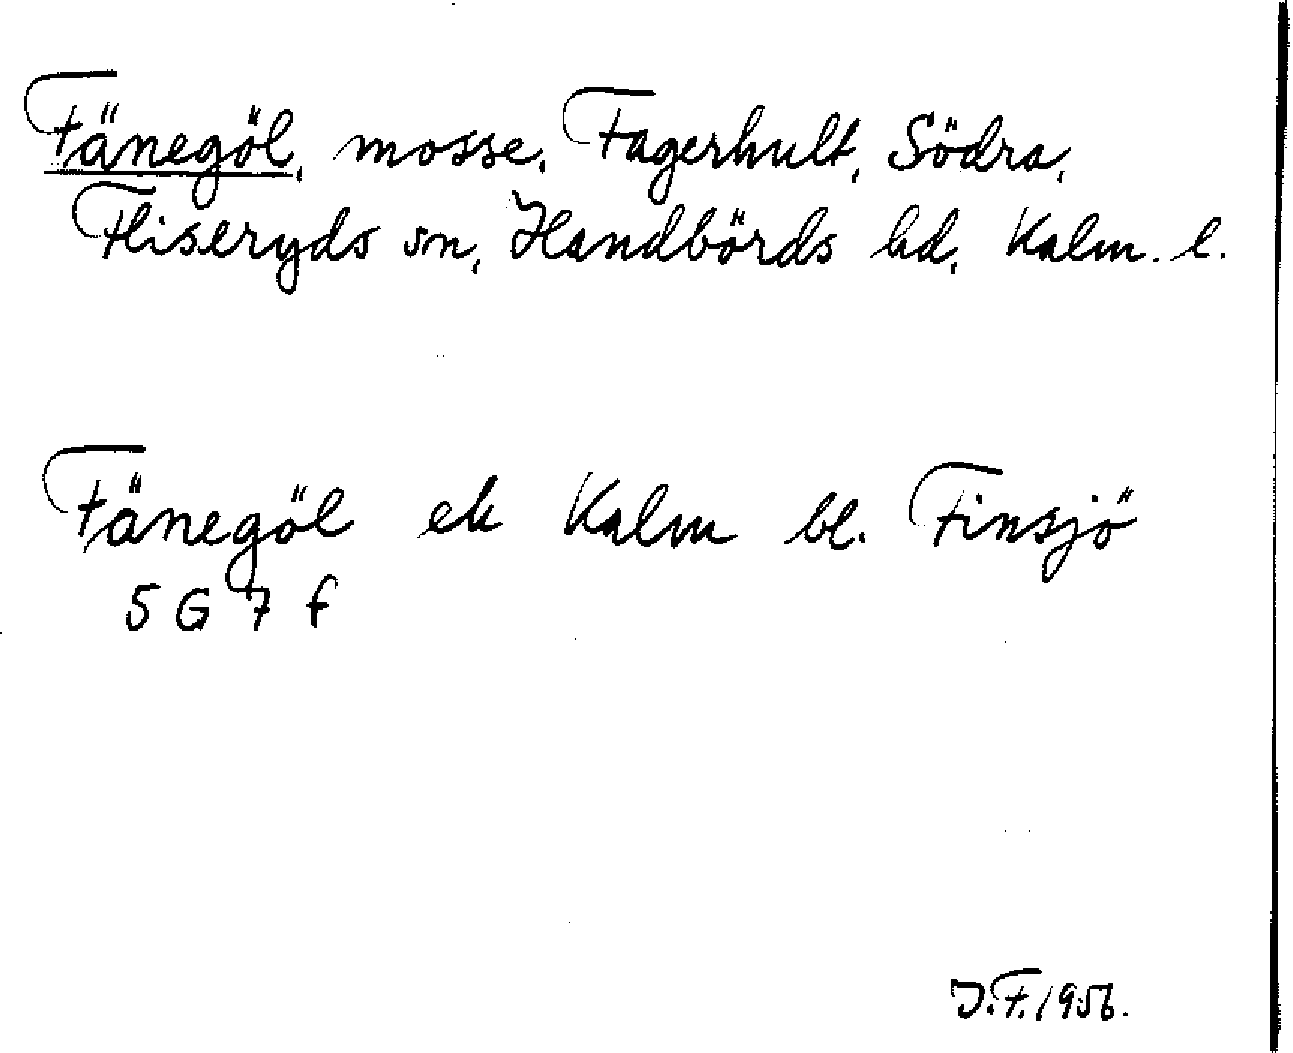 Fänegöl, mosse, Fagerhult, Södra,
Fliseryds sn, Handbörds hd, Kalm. l.
Fänegöl ek Kalm bl. Finsjö
5 G 7 f
J.F. 1956.